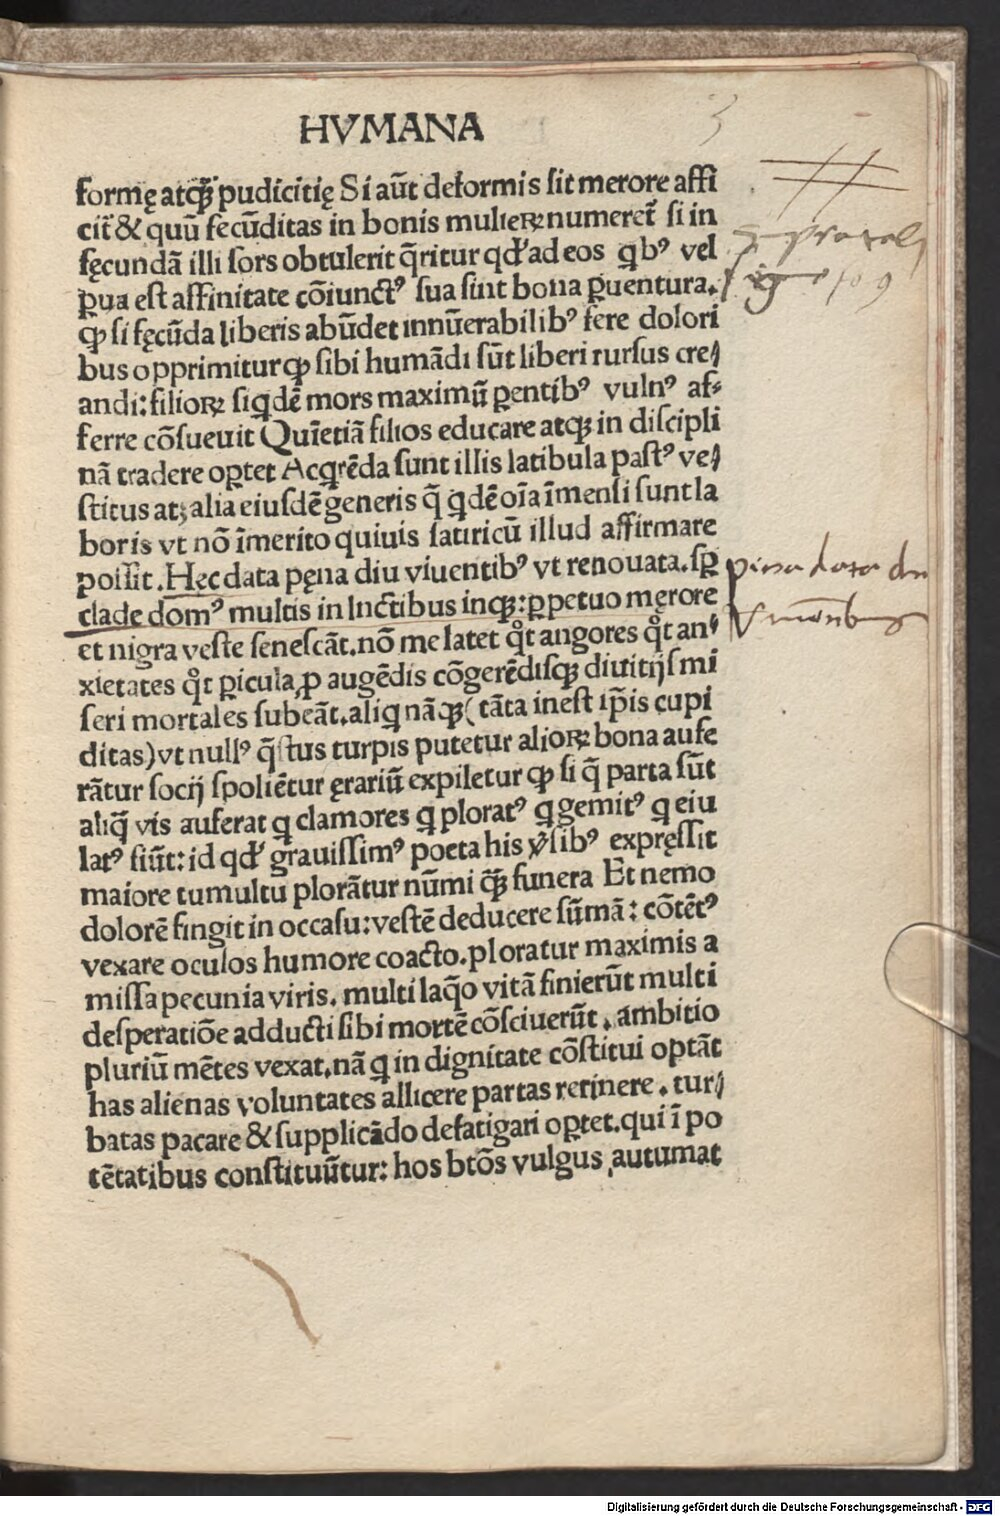 HVMANA
3
formę atqꝫ̃ pudicitię Si aũt deformis sit merore affi
cit̃ & quũ fecũditas in bonis mulieꝝ numeret̃ si in
fęcundã illi sors obtulerit q̃ritur qđ ad eos qbꝰ vel
ꝑua est affinitate cõiunctꝰ sua sint bona ꝑuentura.
ꝙ si fęcũda liberis abũdet innũerabilibꝰ fere dolori
bus opprimitur ꝙ sibi humãdi sũt liberi rursus cre⸗
andi: filioꝝ siqdẽ mors maximũ ꝑentibꝰ vulnꝰ af⸗
ferre cõsueuit Quĩetiã filios educare atqꝫ in discipli
nã tradere oꝑtet Acqrẽda sunt illis latibula pastꝰ ve⸗
stitus atꝫ alia eiusdẽ generis q̃ qdẽ oĩa ĩmensi sunt la
boris vt nõ ĩmerito quiuis satiricũ illud affirmare
possit. Hęc data pęna diu viuentibꝰ vt renouata. sꝑ
clade domꝰ multis in lnctibus inqꝫ: ꝑpetuo męrore
et nigra veste senescãt. nõ me latet qͦt angores qͦt an⸗
xietates qͦt ꝑicula, ꝓ augẽdis cõgerẽdisqꝫ diuitijs mi
seri mortales subeãt. aliq nãqꝫ (tãta inest ip̃is cupi
ditas) vt nullꝰ q̃stus turpis putetur alioꝝ bona aufe
rãtur socij spoliẽtur ęrariũ expiletur ꝙ si q̃ parta sũt
aliq̃ vis auferat q clamores q ploratꝰ q gemitꝰ q eiu
latꝰ fiũt: id qđ grauissimꝰ poeta his v̓sibꝰ expręssit
maiore tumultu plorãtur nũmi qꝫ̃ funera Et nemo
dolorẽ fingit in occasu: vestẽ deducere sũmã: cõtẽtꝰ
vexare oculos humore coacto. ploratur maximis a
missa pecunia viris. multi laq̊o vitã finierũt multi
desperatiõe adducti sibi mortẽ cõsciuerũt. ambitio
pluriũ mẽtes vexat. nã q in dignitate cõstitui optãt
has alienas voluntates allicere partas retinere. tur⸗
batas pacare & supplicãdo defatigari oꝑtet. qui ĩ po
tẽtatibus constituũtur: hos btõs vulgus autumat
pena data diu
Digitalisierung gefördert durch die Deutsche Forschungsgemeinschaft - DFG